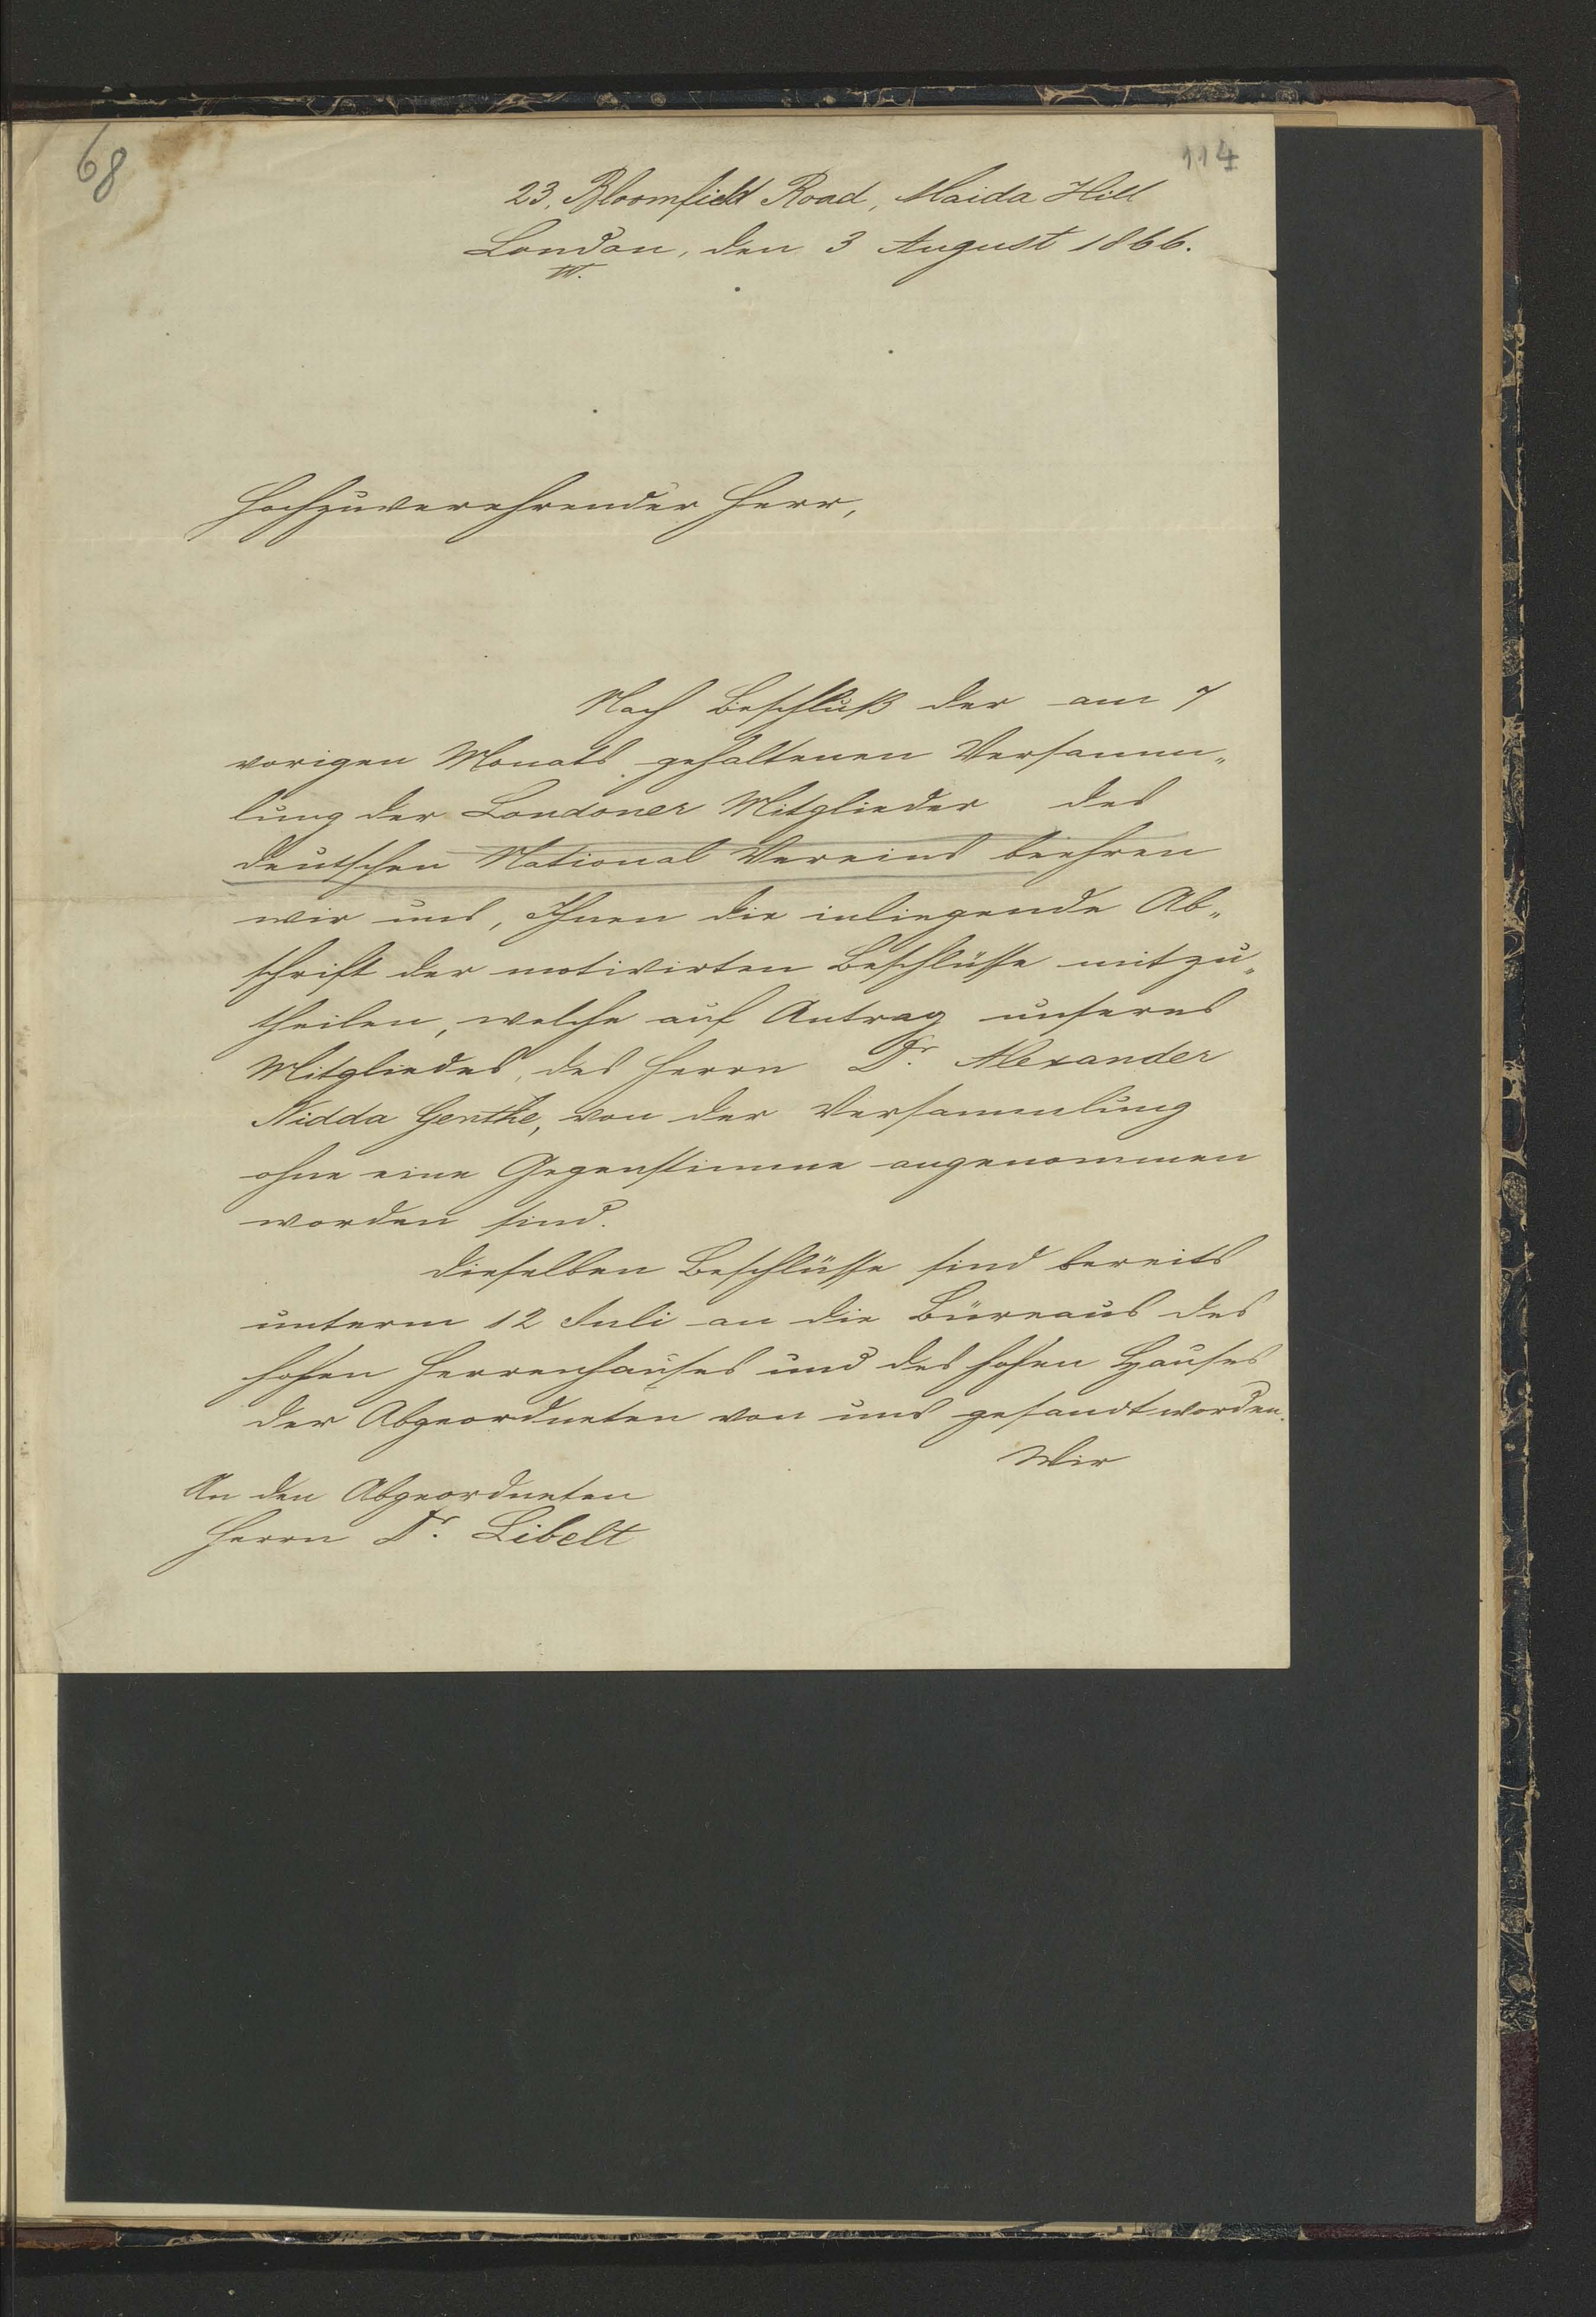 68
114
23, Bloomfield Road, Maida Hill
London, den 3 August 1866.
W.
Hochzuverehrender Herr,
Nach Beschluß der am 7
vorigen Monats gehaltenen Versamm„
lung der Londoner Mitglieder des
deutschen National Vereins beehren
wir uns, Ihnen die inliegende Ab„
schrift der motivirten Beschlüsse mitzu„
theilen, welche auf Antrag unseres
Mitgliedes, des Herrn Dr. Alexander
Nidda Genthe, von der Versammlung
ohne eine Gegenstimme angenommen
worden sind.
Dieselben Beschlüsse sind bereits
unterm 12 Juli an die Büreaus des
hohen Herrenhauses und des hohen Hauses
der Abgeordneten von uns gesandt worden.
Wir
An den Abgeordneten
Herrn Dr. Libelt